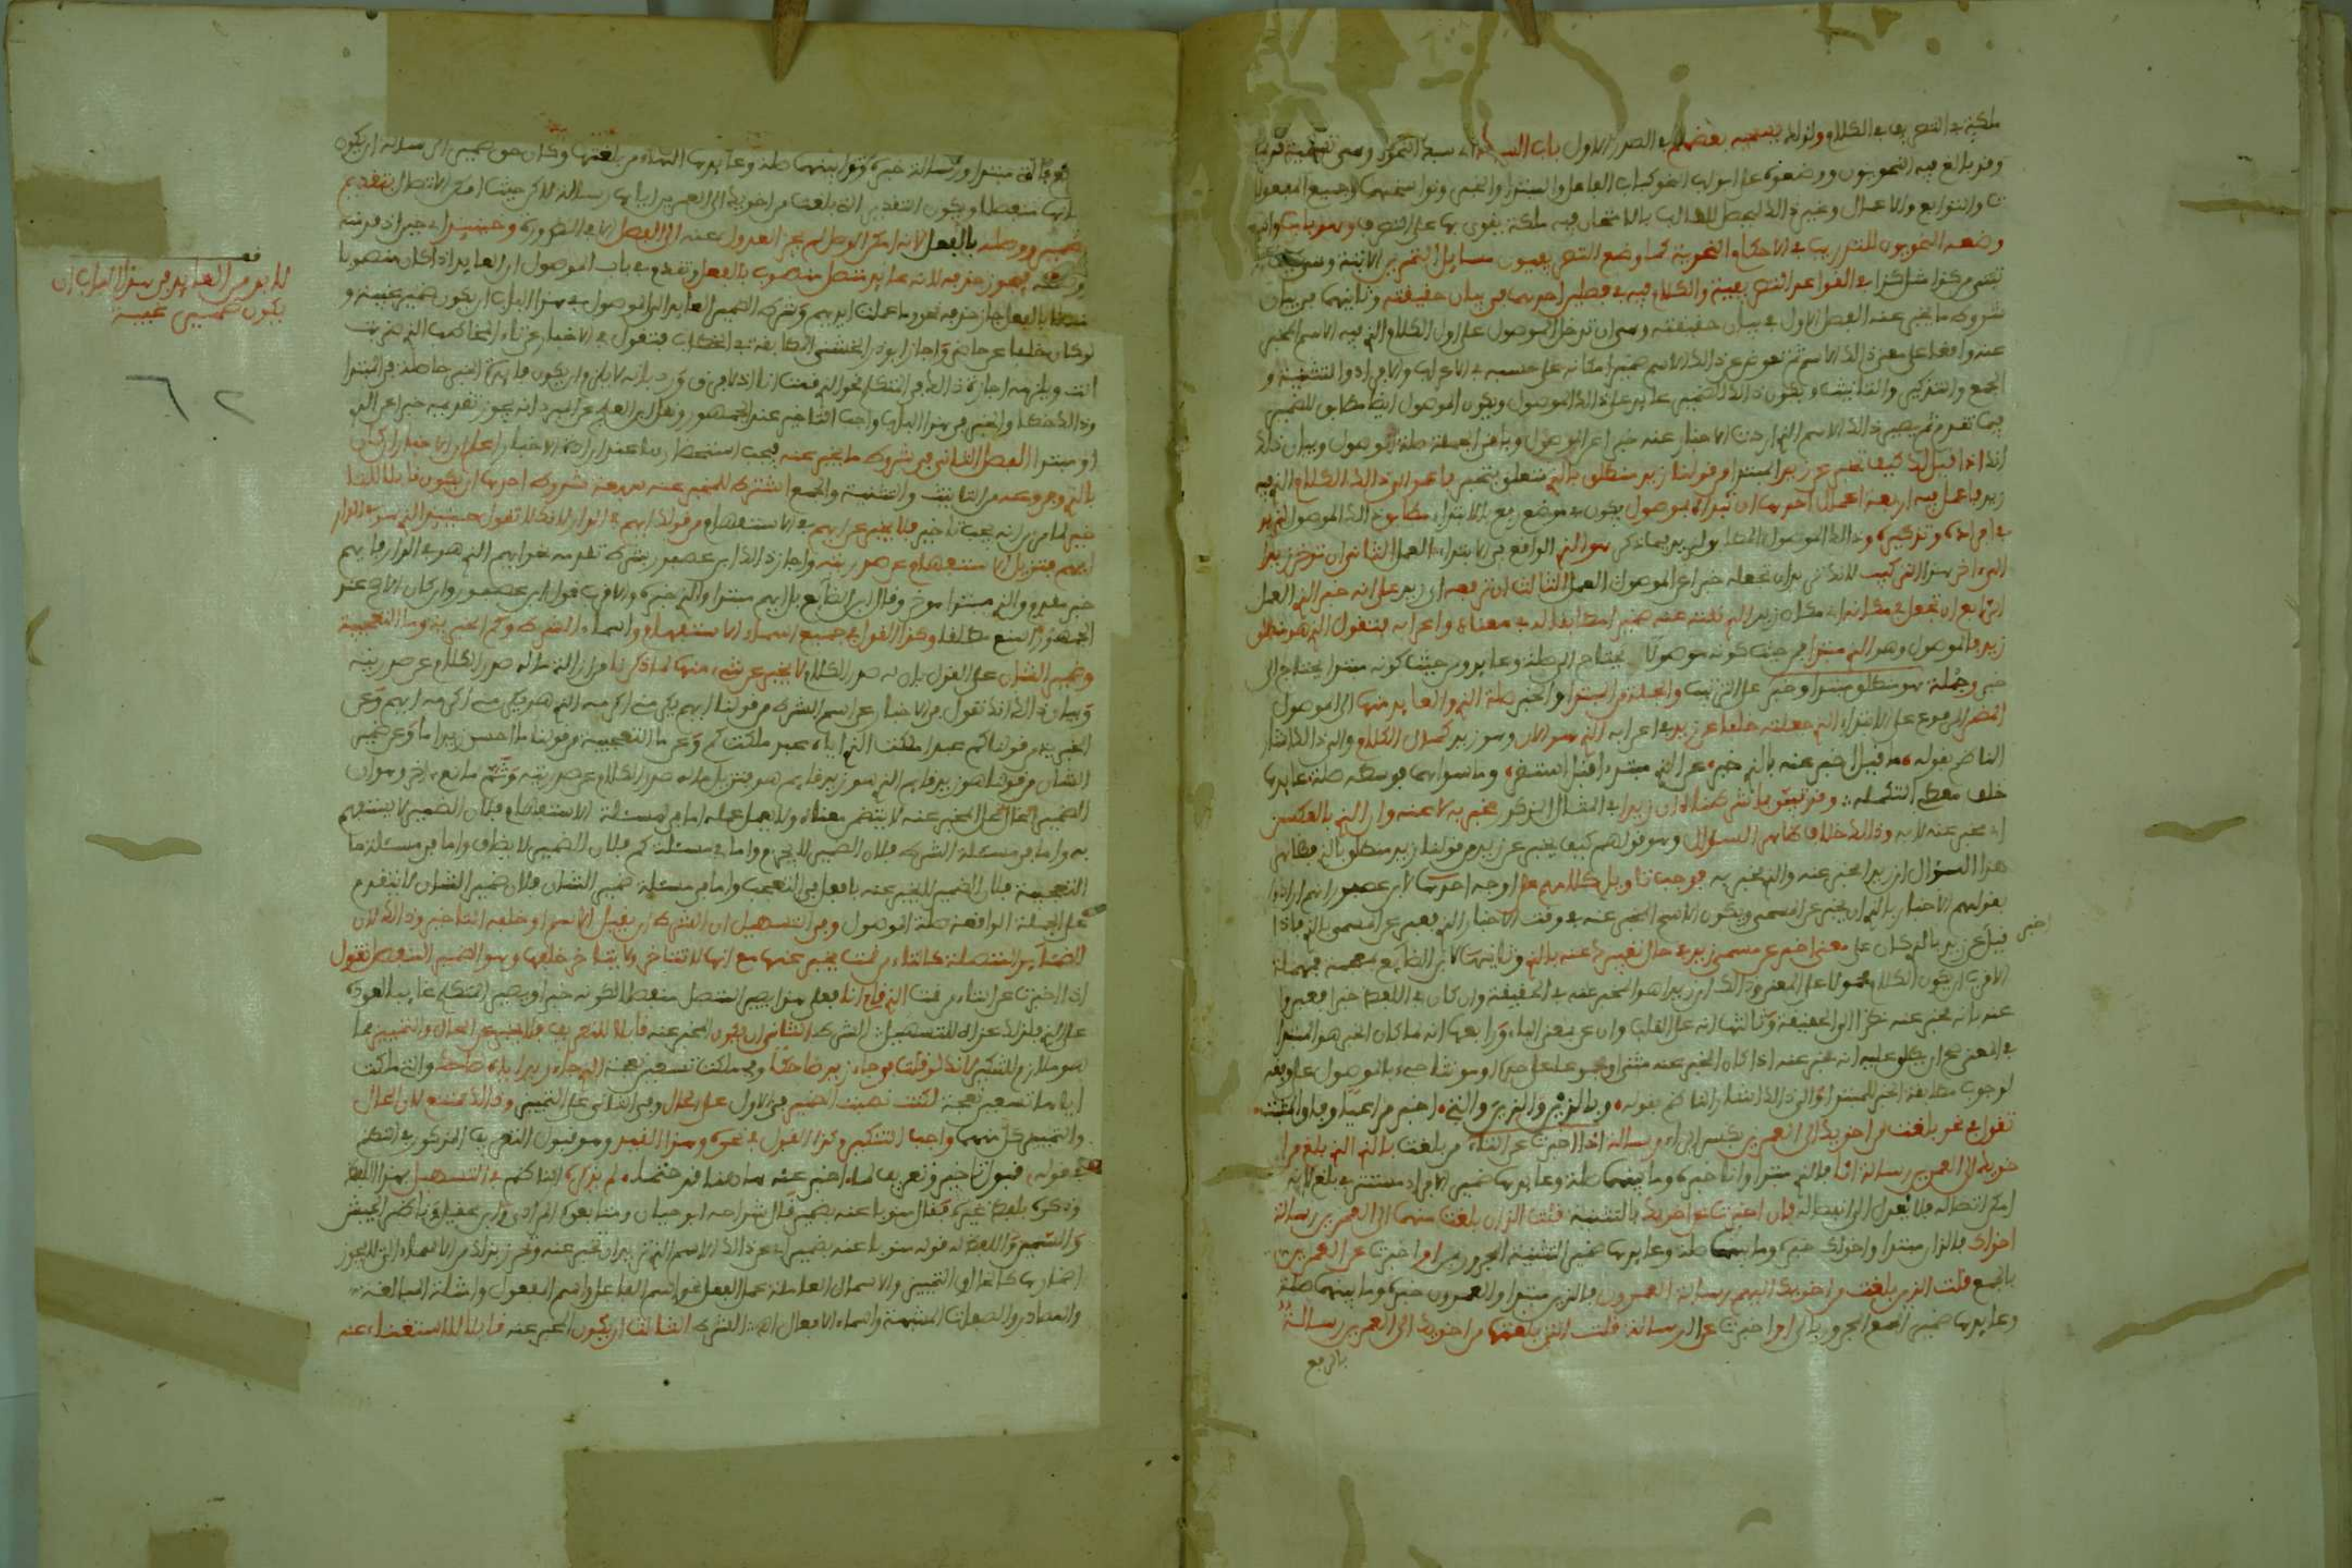 ملكة في التصريف في الكلام ولذا يسميه بعضهم في الصدر الاول باب السبك
وقد بالغ فيه النحويون ووضعوه على ابواب النحو كباب الفاعل والمبتدا والخبر ونواسخهما وجميع المفعولا
ت والتوابع والاعمال وغير ذالك ليحصل للطالب بالامتحان فيه ملكة يقوى بها على التصرف
وضعه النحويون للتدريب في الاحكام النحوية كما وضع التصريفيون مسايل التمرين
في القواعد التصريفية والكلام فيه في فصلين احدهما في بيان حقيقته وثانيهما في بيان
شروط ما يخبر عنه الفصل الاول في بيان حقيقته وهي ان تدخل الموصول على اول الكلام الذي فيه الاسم المخبر
عنه واقعا على معنى ذالك الاسم ثم تعوض عن ذالك الاسم ضميرا مكانه على حسبه في الاعراب والافراد والتثنية و
الجمع والتذكير والتانيث ويكون ذالك الضمير عايدا على ذالك الموصول ويكون الموصول ايضا مطابق للضمير
فيما تقدم ثم يصير ذالك الاسم الذي اردت الاخبار عنه خبرا عن الموصول وباقي الجملة صلة الموصول وبيان ذالك
انك اذا قيل لك كيف تخبر عن زيد المبتدا من قولنا زيد منطلق بالذي متعلق بتخبر فاعمد الى ذالك الكلام الذي فيه
زيد فاعمل فيه اربعة اعمال احدها ان تبتداه بموصول يكون في موضع رفع بالابتداء مطابق ذالك الموصول لزيد
في افراده وتذكيره وذالك الموصول المطابق لزيد فيما ذكر هو الذي الواقع في الابتداء العمل الثاني ان تؤخر زيدا
الى اخر هذا التركيب لانك تريد ان تجعله خبرا عن الموصول العمل الثالث ان ترفعه اي زيد على انه خبر الذي العمل
الرابع ان تجعل في مكانه اي مكان زيد الذي نقلته عنه ضميرا مطابقا له في معناه واعرابه فتقول الذي هو منطلق
زيد فالموصول وهو الذي مبتدا فمن حيث كونه موصولا يحتاج الى صلة وعايد ومن حيث كونه مبتدا يحتاج الى
خبر وجملة هو منطلق مبتدا وخبر على الترتيب والجملة من المبتدا والخبر صلة الذي والعايد منها الى الموصول
الضمير المرفوع على الابتداء الذي جعلته خلفا عن زيد في اعرابه الذي هو الان وهو زيد كمال الكلام والى ذالك اشار
الناظم بقوله ما قيل اخبر عنه بالذي خبر عن الذي مبتدءا قبل استقر وما سواهما فوسطه صلة عايدها
خلف معطي التكملة وقد تبين بما شرحناه ان زيدا في المثال المذكور مخبر به لا عنه وان الذي بالعكس
اي مخبر عنه لا به وذالك خلاف ظاهر السؤال وهو قولهم كيف يخبر عن زيد من قولنا زيد منطلق بالذي فظاهر
هذا السؤال ان زيدا مخبر عنه والذي مخبر به فوجب تاويل كلامهم على اوجه احدها لابن عصفور انهم ارادوا
بقولهم الاخبار بالذي ان يخبر عن المسمى ويكون الاسم المخبر عنه في وقت الاخبار الذي يعبر عن المسمى بالذي فاذا
قيل اخبر عن زيد بالذي كان على معنى اخبر عن مسمى زيد في حال تعبيرك عنه بالذي وثانيها لابن الضايع
الاقرب ان يكون الكلام محمولا على المعنى وذالك ان زيدا هو المخبر عنه في الحقيقة وان كان في اللفظ خبرا فعبروا
عنه بانه مخبر عنه نظرا الى الحقيقة وثالثها انه على القلب وان عن بمعنى الباء ورابعها انه لما كان الخبر هو المبتدا
في المعنى صح ان يطلق عليه انه مخبر عنه اذا كان المخبر عنه مثنى او مجموعا على حده او مونثا جيء بالموصول على وفقه
لوجوب مطابقة الخبر للمبتدا والى ذالك اشار الناظم بقوله وباللذين والذين والتي اخبر مراعيا وفاق المثبت
تقول في نحو بلغت من اخويك الى العمرين بكسر الراء رسالة اذا اخبرت عن التاء من بلغت بالذي الذي بلغ من ا
خويك الى العمرين رسالة انا فالذي مبتدا وانا خبره وما بينهما صلة وعايدها ضمير الافراد مستتر في بلغ لانه
امكن اتصاله فلا يعدل الى انفصاله فان اخبرت عن اخويك بالتثنية قلت اللذان بلغت منهما الى العمرين رسالة
اخواك فاللذان مبتدا واخواك خبره وما بينهما صلة وعايدها ضمير التثنية المجرور بمن او اخبرت عن العمرين
بالجمع قلت الذين بلغت من اخويك اليهم رسالة العمرون فالذين مبتدا والعمرون خبره وما بينهما صلة
وعايدها ضمير الجمع المجرور بالى او اخبرت عن الرسالة قلت التي بلغتها من اخويك الى العمرين رسالة
بالرفع
اخبر
فالتي مبتدا ورسالة خبره وما بينهما صلة وعايدها الهاء من بلغتها وكان حق ضمير الرسالة ان يكون
ويكون التقدير التي بلغت من اخويك الى العمرين اياها رسالة لاكن حيث امكن الاتصال بتقديم
الضمير ووصله بالفعل لانه اذا امكن الوصل لم يجز العدول عنه الى الفصل الا في الضرورة وحينئذ اي حين اذ قدمته
ووصلته فيجوز حذفه لانه عايد متصل منصوب بالفعل وتقدم في باب الموصول ان العايد اذا كان منصوبا
متصلا بالفعل جاز حذفه نحو وما عملت ايديهم وشرط الضمير العايد الى الموصول في هذا الباب ان يكون ضمير غيبة و
لو كان خلفا عن حاضر واجاز ابو ذر الخشني المطابقة في الخطاب فتقول في الاخبار عن تاء المخاطب الذي ضربت
انت ويلزمه اجازة ذالك في المتكلم نحو الذي قمت انا اذ لا فرق ورد بانه لا يلزم ان يكون فايدة الخبر حاصلة في المبتدا
وذالك خطا والخبر في هذا الباب واجب التاخير عند الجمهور ونقل ابن العلج عن المبرد انه يجوز تقديمه خبرا عن الذي
او مبتدا الفصل الثاني في شروط ما يخبر عنه
بالذي وفروعه من التانيث والتثنية والجمع اشترط للمخبر عنه سبعة شروط احدها ان يكون قابلا للتا
خير لما مر من انه يجب تاخيره فلا يخبر عن ايهم في الاستفهام من قولك ايهم في الدار لانك تقول حينئذ الذي هو في الدار
ايهم فتزيل الاستفهام عن صدريته واجاز ذالك ابن عصفور بشرط تقدمه نحو ايهم الذي هو في الدار فايهم
خبر مقدم والذي مبتدا موخر وقال ابن الضايع بل ايهم مبتدا والذي خبره والاقرب قول ابن عصفور وان كان الارجح عند
الجمهور المنع مطلقا وكذا القول في جميع اسماء الاستفهام واسماء الشرط وكم الخبرية وما التعجبية
وضمير الشان على القول بان له صدر الكلام لا يخبر عن شيء منها لما ذكرنا من ازالة ما له صدر الكلام عن صدريته
وبيان ذالك انك تقول في الاخبار عن اسم الشرط من قولنا ايهم يكرمني اكرمه الذي هو يكرمني اكرمه ايهم وعن كم
الخبرية من قولنا كم عبد ملكت الذي اياه عبد ملكت كم وعن ما التعجبية من قولنا ما احسن زيدا ما وعن ضمير
الشان من قولنا هو زيد قايم الذي هو زيد قايم هو فتزيل ما له صدر الكلام عن صدريته وثم مانع اخر وهو ان
الضمير الحال محل المخبر عنه لا يتضمن معناه ولا يعمل عمله اما في مسئلة الاستفهام فلان الضمير لا يستفهم
به واما في مسئلة الشرط فلان الضمير لا يجزم واما في مسئلة كم فلان الضمير لا يضاف واما في مسئلة ما
التعجبية فلان الضمير لا يخبر عنه بافعل في التعجب واما في مسئلة ضمير الشان فلان ضمير الشان لا يتقدم
على الجملة الواقعة صلة الموصول وفي التسهيل ان الشرط ان يقبل الاسم او خلفه التاخير وذالك لان
الضماير المتصلة كالتاء من قمت يخبر عنها مع انها لا تتاخر ولكن يتاخر خلفها وهو الضمير المنفصل تقول
اذا اخبرت عن التاء من قمت الذي قام انا فعلى هذا يصير المتصل منفصلا لكونه خبرا ويصير المتكلم غايبا لعوده
على الذي فلذلك عزاه للتسهيل الشرط الثاني ان يكون المخبر عنه قابلا للتعريف فلا يخبر عن الحال والتمييز لما
هو ملازم للتنكير لانك لو قلت في جاء زيد ضاحكا وفي ملكت تسعين نعجة الذي جاء زيد اياه ضاحك والتي ملكت
اياها تسعين نعجة لكنت نصبت الضمير في الاول على الحال وفي الثاني على التمييز وذالك ممتنع لان الحال
والتمييز كل منهما واجب التنكير وكذا القول في نحوه وهذا القيد وهو قبول التعريف المذكور في النظم
في قوله قبول تاخير وتعريف لما اخبر عنه ها هنا قد حتما لم يذكره الناظم في التسهيل بهذا اللفظ
وذكره بلفظ غيره فقال منوبا عنه بضمير قال شراحه ابو حيان ومتابعوه المرادي وابن عقيل وناظر الجيش
والسمين واللفظ له قوله منوبا عنه بضمير اي عن ذالك الاسم الذي تريد ان تخبر عنه وتحرز بذلك من الاسماء التي لا يجوز
اضمارها كالحال والتمييز والاسماء العاملة عمل الفعل نحو اسم الفاعل واسم المفعول وامثلة المبالغة
والمصادر والصفات المشبهة واسماء الافعال اه الشرط الثالث ان يكون المخبر عنه قابلا للاستغناء عنه
قف
لا بد من العايد في هذا الباب ان
يكون ضمير غيبة